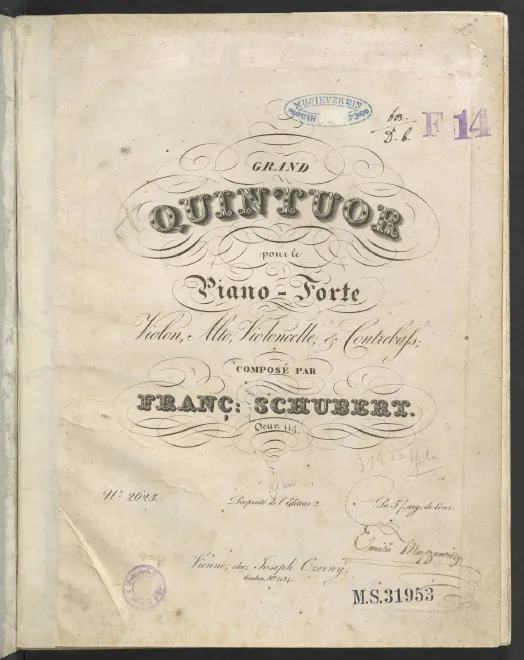 MUSIKVEREIN
603.
D. b.
F 14
GRAND
QUINTUOR
pour le
Piano-Forte
Violon, Alto, Violoncelle, & Contrebaſs;
COMPOSÉ PAR
FRANÇ: SCHUBERT.
Oeuv. 114.
Nº 2625.
Propriété de l'Editeur.
Pr. 5 f. arg. de Conv.
Vienne, chez Joseph Czerny,
Graben, Nº 1134.
M.S.31953